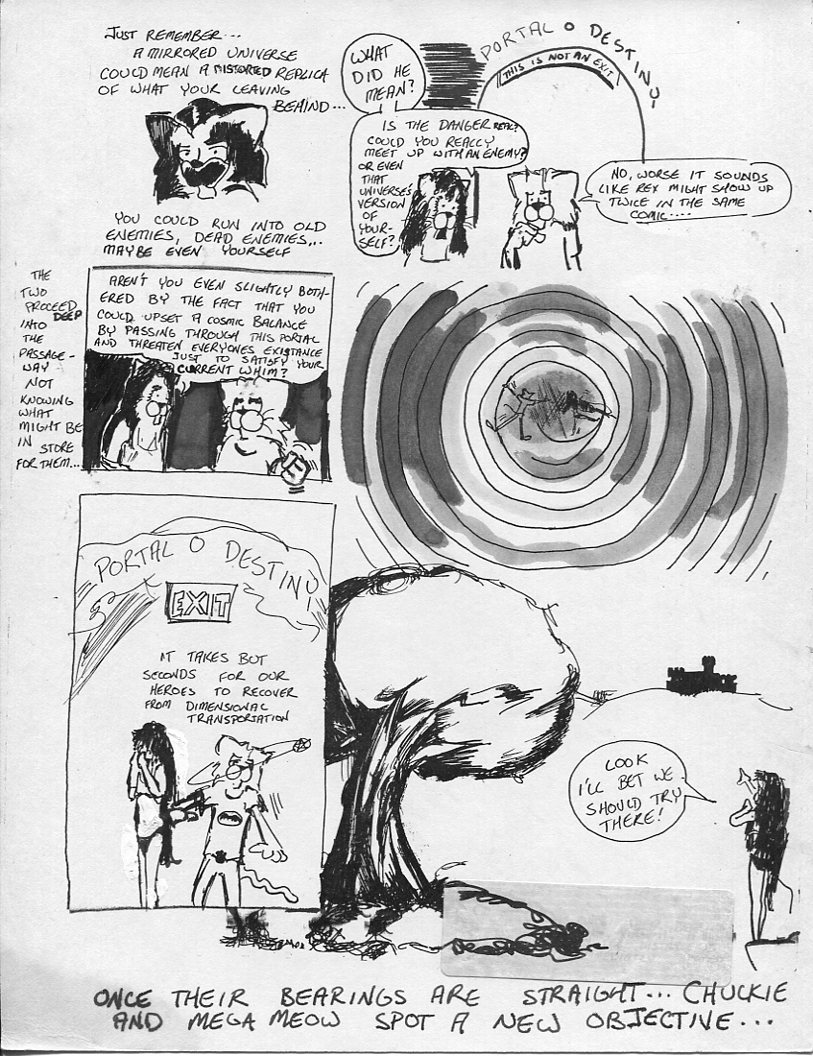 JUST REMEMBER...
A MIRRORED UNIVERSE
COULD MEAN A DISTORTED REPLICA
OF WHAT YOUR LEAVING
BEHIND...
YOU COULD RUN INTO OLD
ENEMIES, DEAD ENEMIES,..
MAYBE EVEN YOURSELF
WHAT
DID HE
MEAN?
PORTAL O DESTINY
THIS IS NOT AN EXIT
IS THE DANGER REAL?
COULD YOU REALLY
MEET UP WITH AN ENEMY?
OR EVEN
THAT
UNIVERSE'S
VERSION
OF
YOUR-
SELF?
NO, WORSE IT SOUNDS
LIKE REX MIGHT SHOW UP
TWICE IN THE SAME
COMIC....
THE
TWO
PROCEED
DEEP
INTO
THE
PASSAGE-
WAY
NOT
KNOWING
WHAT
MIGHT BE
IN STORE
FOR THEM...
AREN'T YOU EVEN SLIGHTLY BOTH-
ERED BY THE FACT THAT YOU
COULD UPSET A COSMIC BALANCE
BY PASSING THROUGH THIS PORTAL
AND THREATEN EVERYONES EXISTANCE
JUST TO SATISFY YOUR
CURRENT WHIM?
PORTAL O DESTINY
EXIT
IT TAKES BUT
SECONDS FOR OUR
HEROES TO RECOVER
FROM DIMENSIONAL
TRANSPORTATION
LOOK
I'LL BET WE
SHOULD TRY
THERE!
ONCE THEIR BEARINGS ARE STRAIGHT... CHUCKIE
AND MEGA MEOW SPOT A NEW OBJECTIVE...